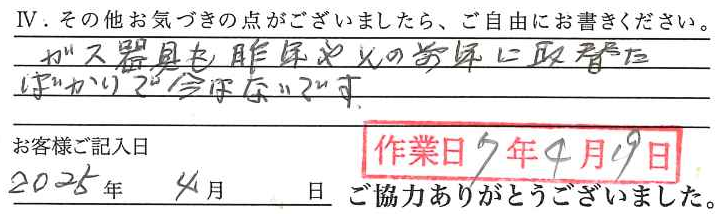 Ⅳ．その他お気づきの点がございましたら、ご自由にお書きください。
ガス器具も昨年やその前年に取替た
ばかりで今はないです
お客様ご記入日
作業日7年4月19日
2025年 4月 日 ご協力ありがとうございました。